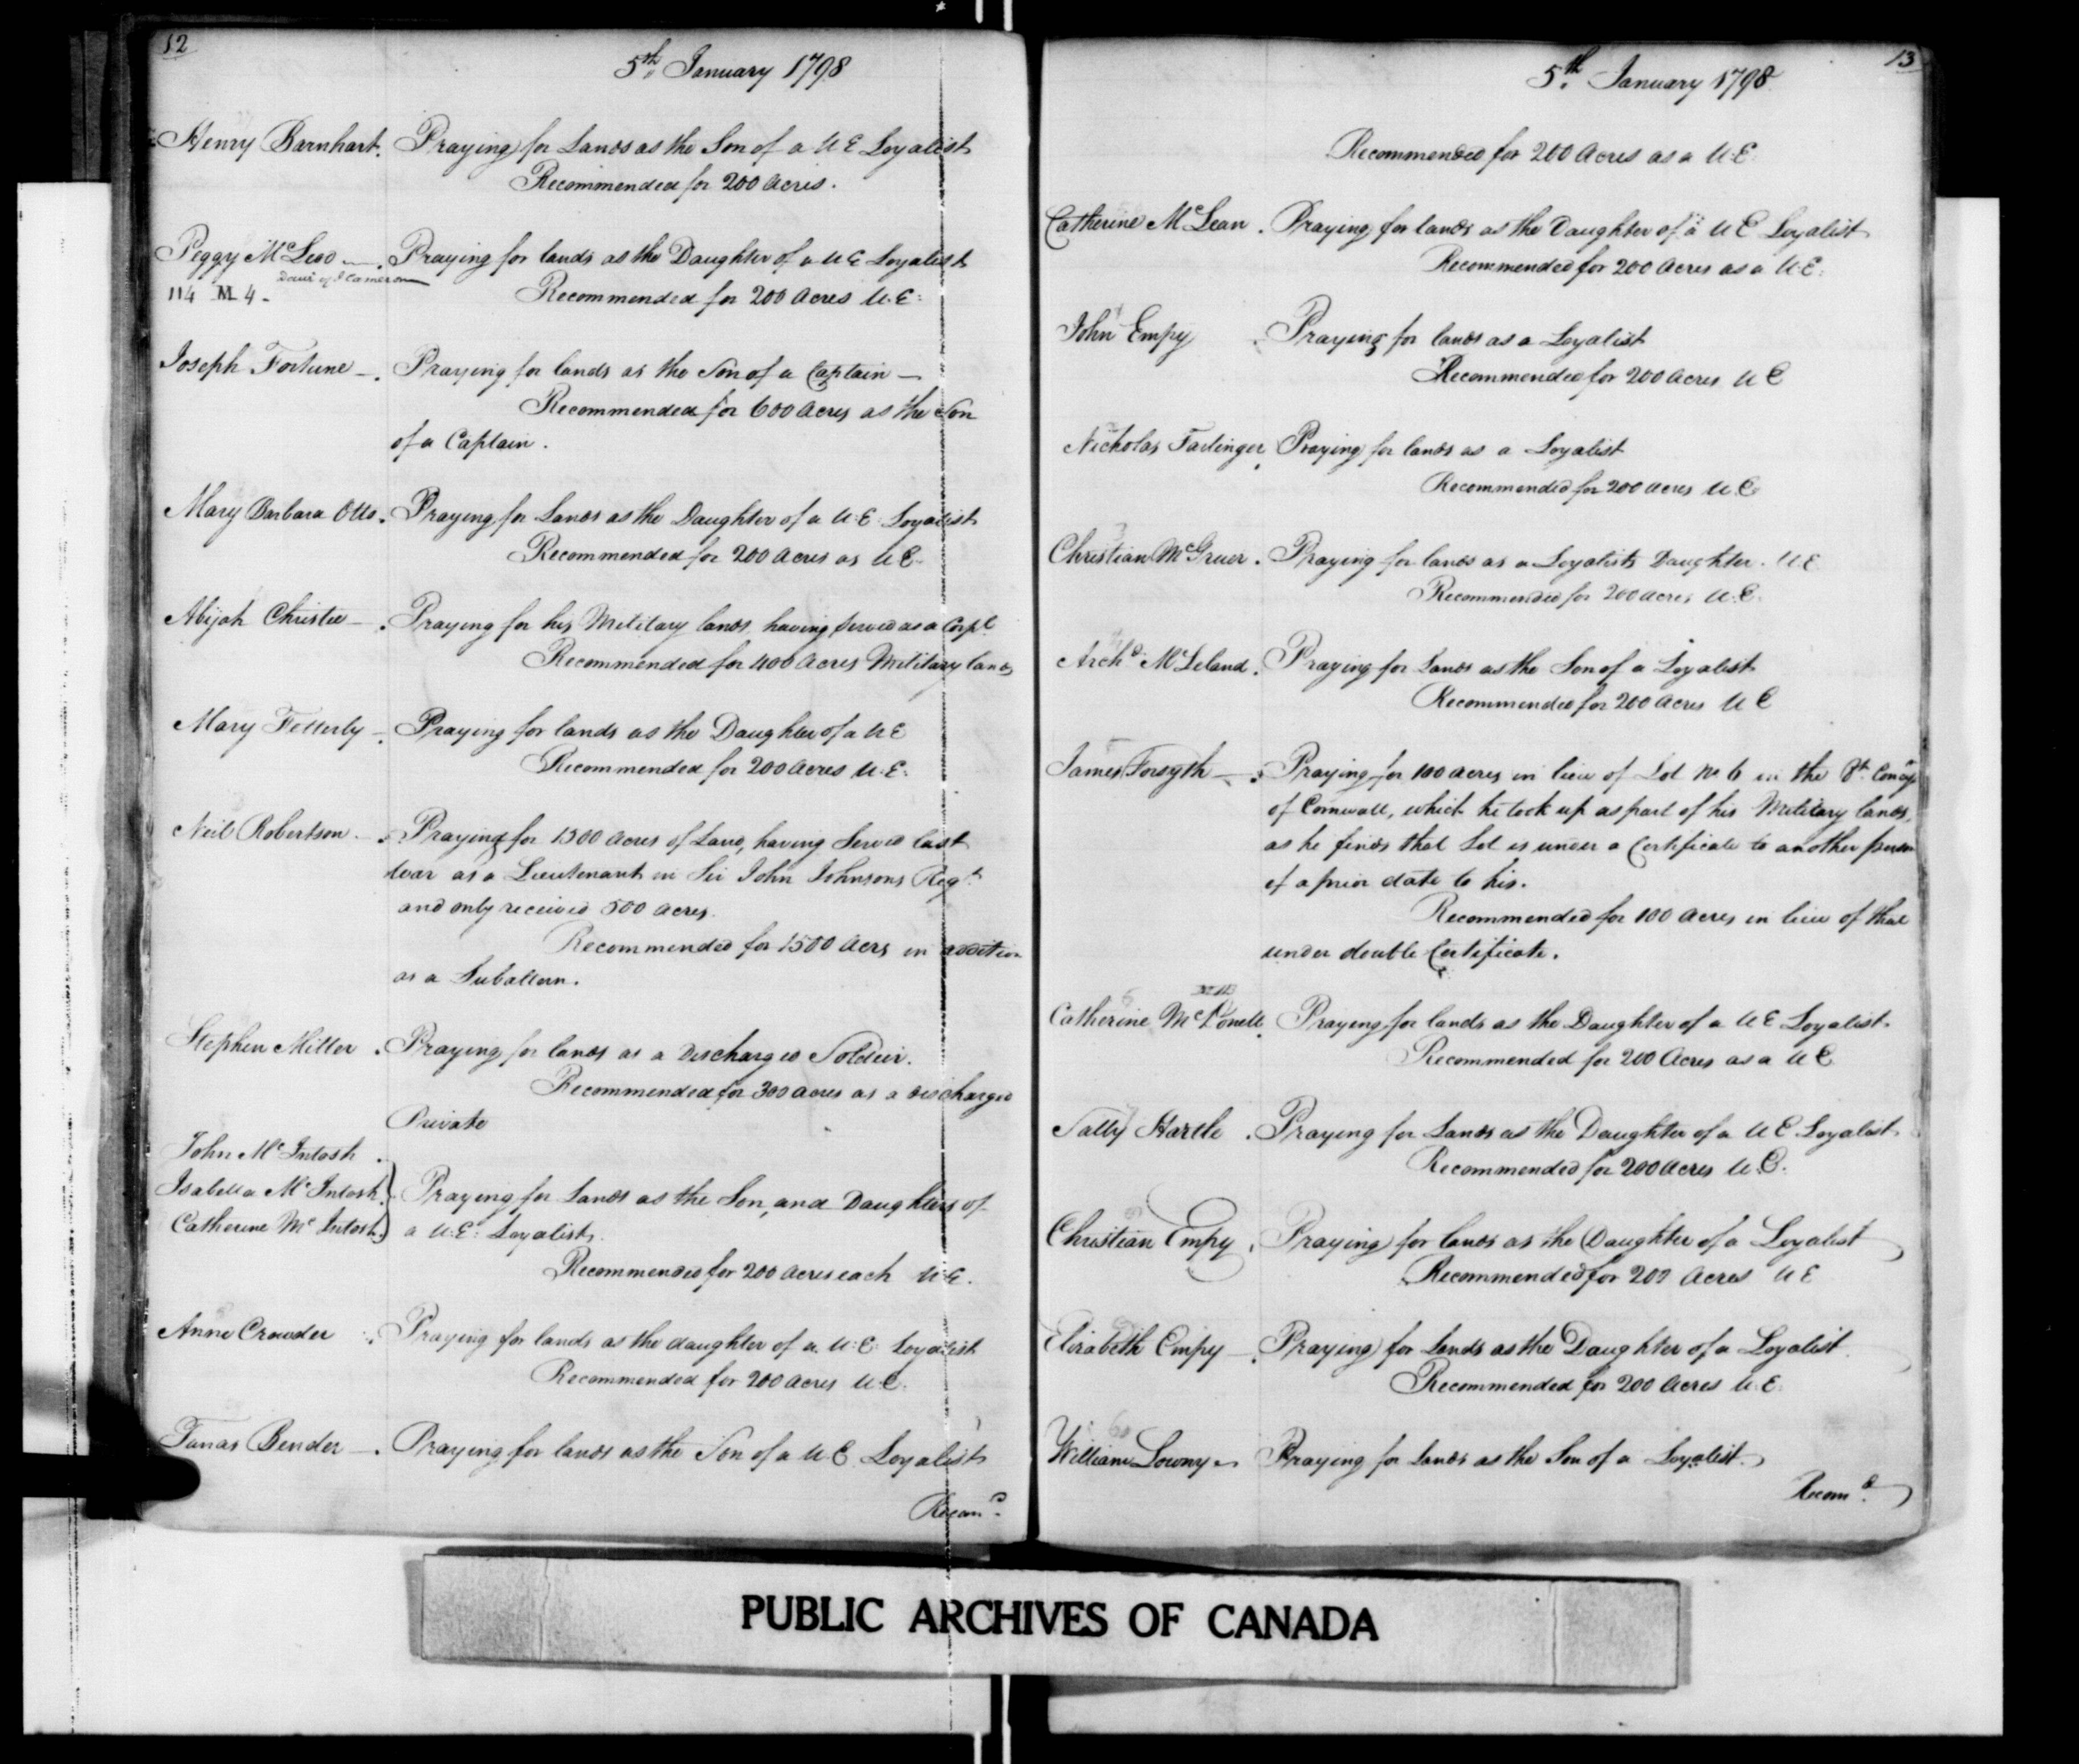 12
5th January 1798
Henry Barnhart. Praying for Lands as the Son of a U E Loyalist
Recommended for 200 Acres.
Peggy McLeod —. Praying for lands as the Daughter of a U E Loyalist
Daur of J Cameron
114 M 4 -
Recommended for 200 Acres U.E:
Joseph Fortune —. Praying for lands as the Son of a Captain —
Recommended for 600 Acres as the Son
of a Captain.
Mary Barbara Otto. Praying for Lands as the Daughter of a U:E: Loyalist
Recommended for 200 Acres as U E.
Abijah Christie —. Praying for his Military lands, having served as a Corpl
Recommended for 400 Acres Military lands
Mary Fetterly —. Praying for lands as the Daughter of a U E
Recommended for 200 Acres U.E:
Neil Robertson —. Praying for 1500 Acres of Land, having Served last
War as a Lieutenant in Sir John Johnsons Regt
and only received 500 Acres.
Recommended for 1500 Acrs in addition
as a Subaltern.
Stephen Miller . Praying for lands as a Discharged Soldier.
Recommended for 300 Acres as a discharged
Private
John McIntosh .
Isabella McIntosh. } Praying for Lands as the Son, and Daughters of
Catherine McIntosh.} a U:E: Loyalist.
Recommended for 200 Acres each U.E.
Anne Crowder . Praying for lands as the daughter of a U:E: Loyalist
Recommended for 200 Acres U.E.
Tunas Bender —. Praying for lands as the Son of a U.E. Loyalist
Recomd.
13
5th. January 1798.
Recommended for 200 Acres as a U:E:
Catherine McLean . Praying for lands as the Daughter of a U E Loyalist
Recommended for 200 Acres as a U.E:
John Empy . Praying for lands as a Loyalist
Recommended for 200 Acres U E
Nicholas Farlinger . Praying for lands as a Loyalist
Recommended for 200 Acres U.E
Christian McGruer . Praying for lands as a Loyalists Daughter. U.E
Recommended for 200 Acres U.E.
Archd. McLeland . Praying for Lands as the Son of a Loyalist
Recommended for 200 Acres U E
James Forsyth —. Praying for 100 Acres in lieu of Lot No 6 in the 8th Concn
of Cornwall, which he took up as part of his Military lands,
as he finds that Lot is under a Certificate to another person
of a prior date to his.
Recommended for 100 Acres in lieu of that
under double Certificate.
Catherine McDonell . Praying for lands as the Daughter of a U E Loyalist.
Recommended for 200 Acres as a U E
Sally Hartle . Praying for Lands as the Daughter of a U E Loyalist
Recommended for 200 Acres U.E.
Christian Empy . Praying for lands as the Daughter of a Loyalist
Recommended for 200 Acres U E
Elizabeth Empy —. Praying for Lands as the Daughter of a Loyalist.
Recommended for 200 Acres U.E.
William Lowny . Praying for Lands as the Son of a Loyalist.
Recomd.
PUBLIC ARCHIVES OF CANADA